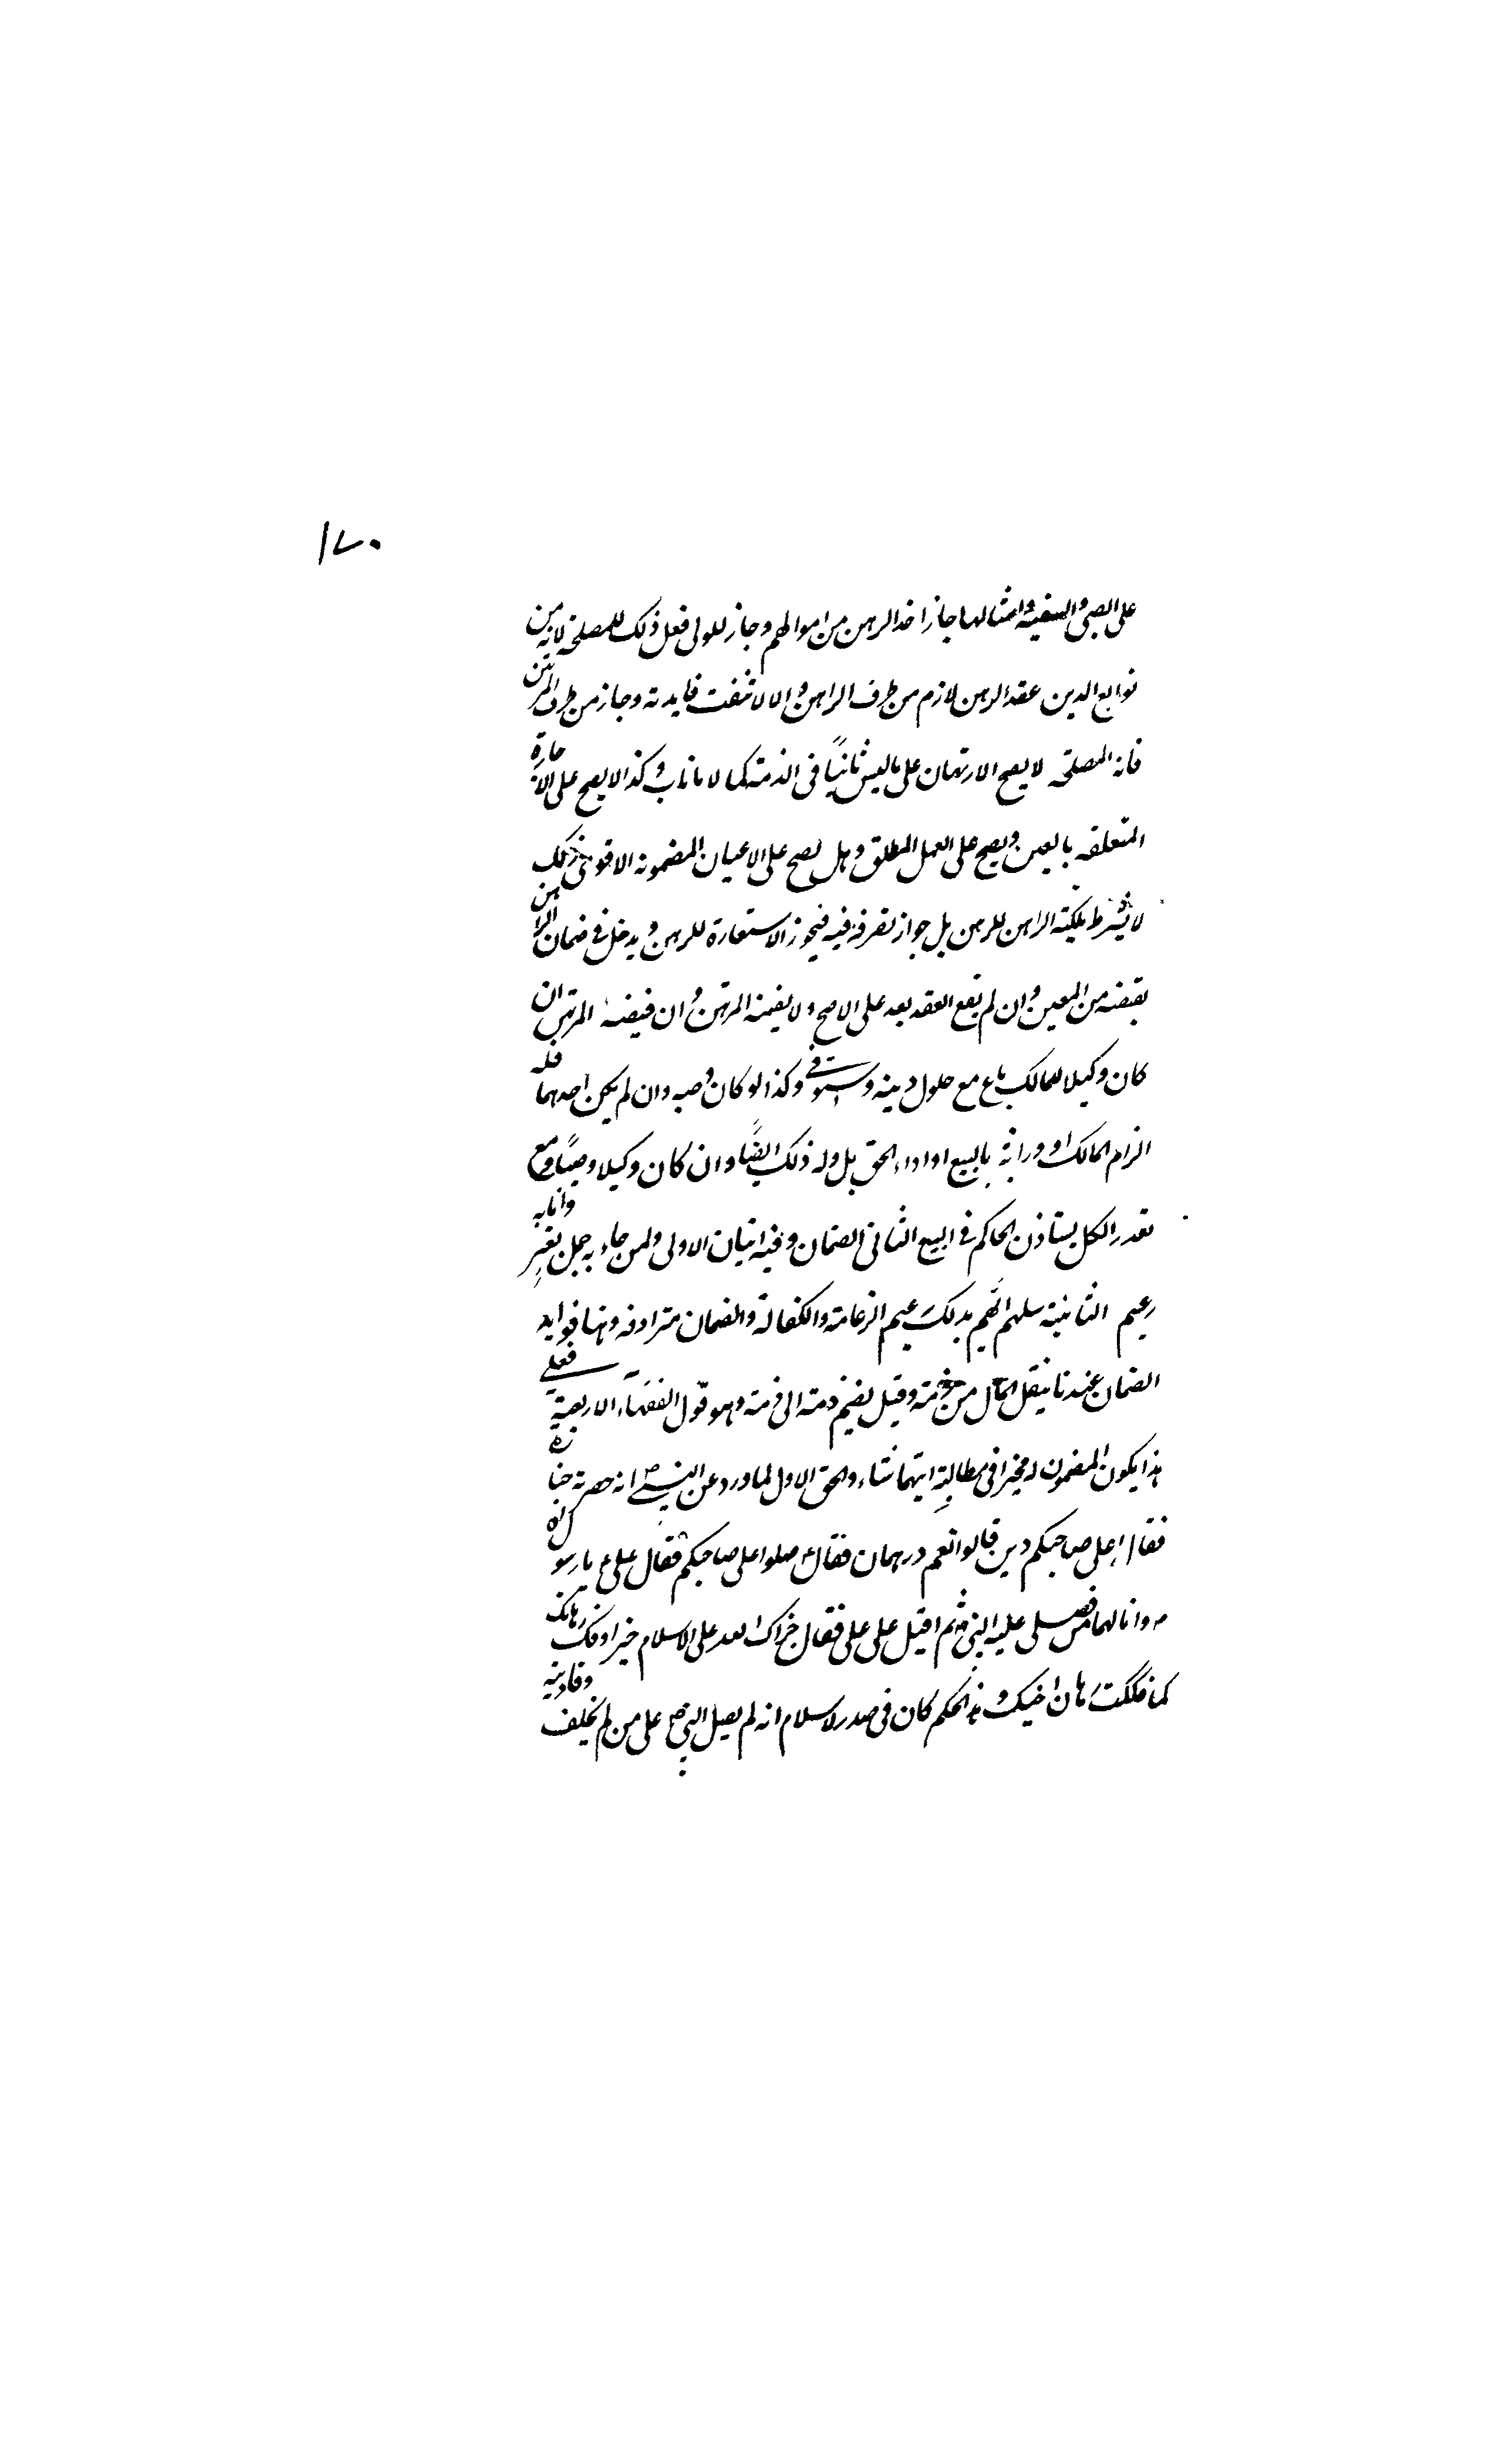 ١٧٠
على الصبى والسفيه وامثالهما جاز اخذ الرهن من اموالهم وجاز للولى فعل ذلك للمصلحة لانه من
توابع الدين عقد الرهن لازم من طرف الراهن والا لانتفت فايدته وجاز من طرف المرتهن
فانه المصلحة لا يصح الارتهان على ما ليس ثابتا فى الذمة كما لا وكذا لا يصح على الاجارة
المتعلقه بالعين ويصح على العمل المطلق وهل يصح على الاعيان المضمونه الاقوى ذلك
لا يشترط ملكية الراهن للرهن بل جواز تصرفه فيه فيجوز الاستعارة للرهن ويدخل فى ضمان الراهن
بقبضه من المعير وان لم يقع العقد بعد على الاصح ولا يضمنه المرتهن وان قبضه المرتهن ان
كان وكيلا للمالك باع مع حلول دينه واستوفى وكذا لو كان وصيه وان لم يكن احدهما فله
الزام المالك او وراثه بالبيع او اداء الحق بل وله ذلك ايضا وان كان وكيلا وصيا ومع
تعذر الكل يستاذن الحاكم فى البيع الثانى الضمان وفيه ايتان الاولى ولمن جاء به حمل بعير وانا به
زعيم الثانية سلهم ايهم بذلك زعيم الزعامة والكفالة والضمان مترادفه وهنا فوايد
الضمان عندنا ينقل المال من ذمة وقيل يضم ذمة الى ذمة وهو قول الفقهاء الاربعة فعلى
هذا يكون المضمون له مخيرا فى مطالبة ايهما شاء والحق الاول لما ورد عن النبى ص انه حضرته جنازه
فقال اعلى صاحبكم دين قالوا نعم درهمان فقال ص صلوا على صاحبكم فقال على ع يا رسول الله
ص وانا لهما ضامن فصلى عليه النبى ص ثم اقبل على على فقال جزاك الله عن الاسلام خيرا وفك رهانك
كما فككت رهان اخيك وهذا الحكم كان فى صدر الاسلام انه لم يصل النبى ص على من لم يخلف وفاء دينه